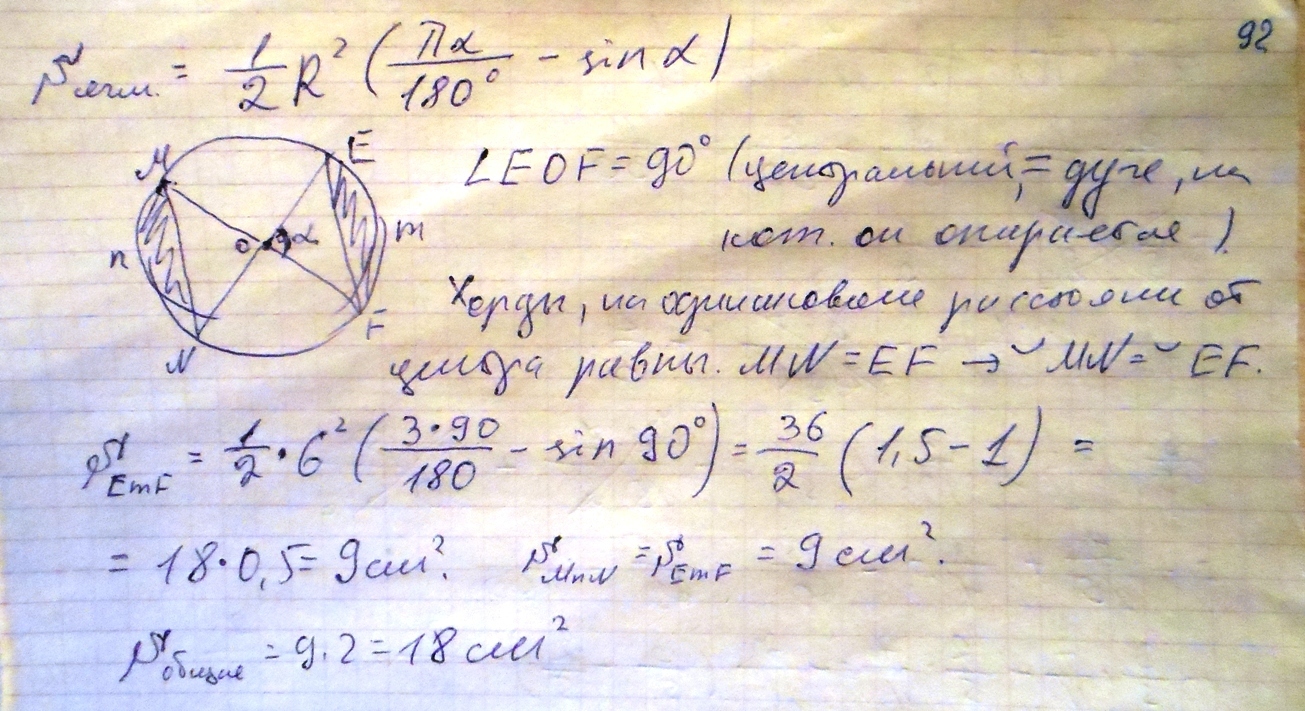 92
Sсегм. = 1/2 R² (πα/180° - sin α)
M E
n o α m
N F
∠EOF = 90° (центральный, = дуге, на
кот. он опирается)
Хорды, на одинаковом расстоянии от
центра равны. MN = EF → ◡MN = ◡EF.
S EmF = 1/2 · 6² (3·90/180 - sin 90°) = 36/2 (1,5 - 1) =
= 18·0,5 = 9 см². S MnN = S EmF = 9 см².
S общие = 9·2 = 18 см²